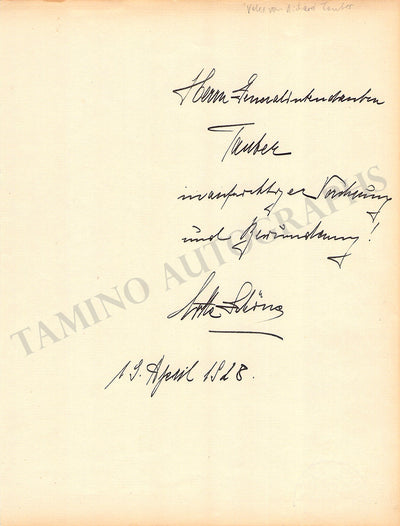 "Vater von Richard Tauber
Herrn Generalintendanten
Tauber
in aufrichtiger Verehrung
und Bewunderung!
Lotte Schöne
19. April 1928.
TAMINO AUTOGRAPHS